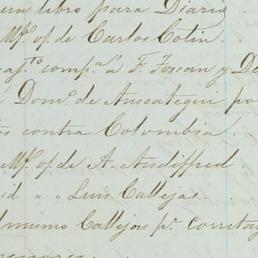 un libro para Diario
Mf. of. de Carlos Cotin.
comp.a á F. Fossan y
Dom.o de Ansoategui po
contra Colombia
Mf. of. de A. Andiffred
id " " Luis Callejas
mismo Callejas pr. corretaj
menores